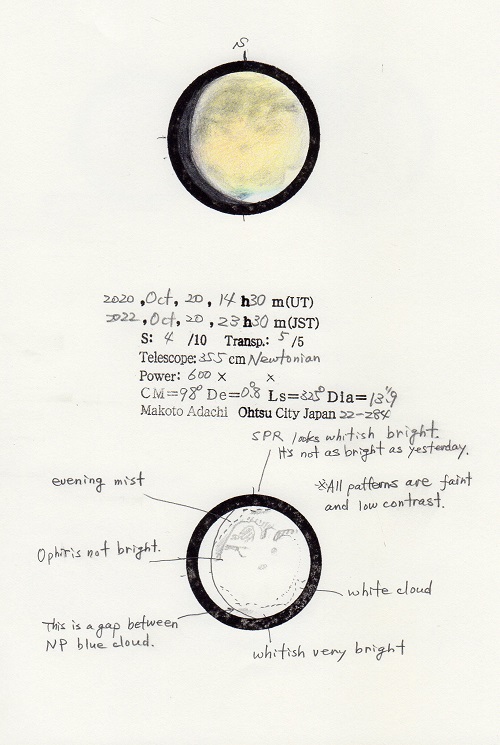 S
2020, Oct, 20, 14 h 30 m(UT)
2022, Oct, 20, 23 h 30 m(JST)
S: 4 /10 Transp.: 5 /5
Telescope: 355 cm Newtonian
Power: 600 × ×
CM=98° De=0.8° Ls=325° Dia=13".9
Makoto Adachi Ohtsu City Japan 22-284
SPR looks whitish bright.
It's not as bright as yesterday.
evening mist
※All patterns are faint
and low contrast.
Ophir is not bright.
white cloud
This is a gap between
NP blue cloud.
whitish very bright